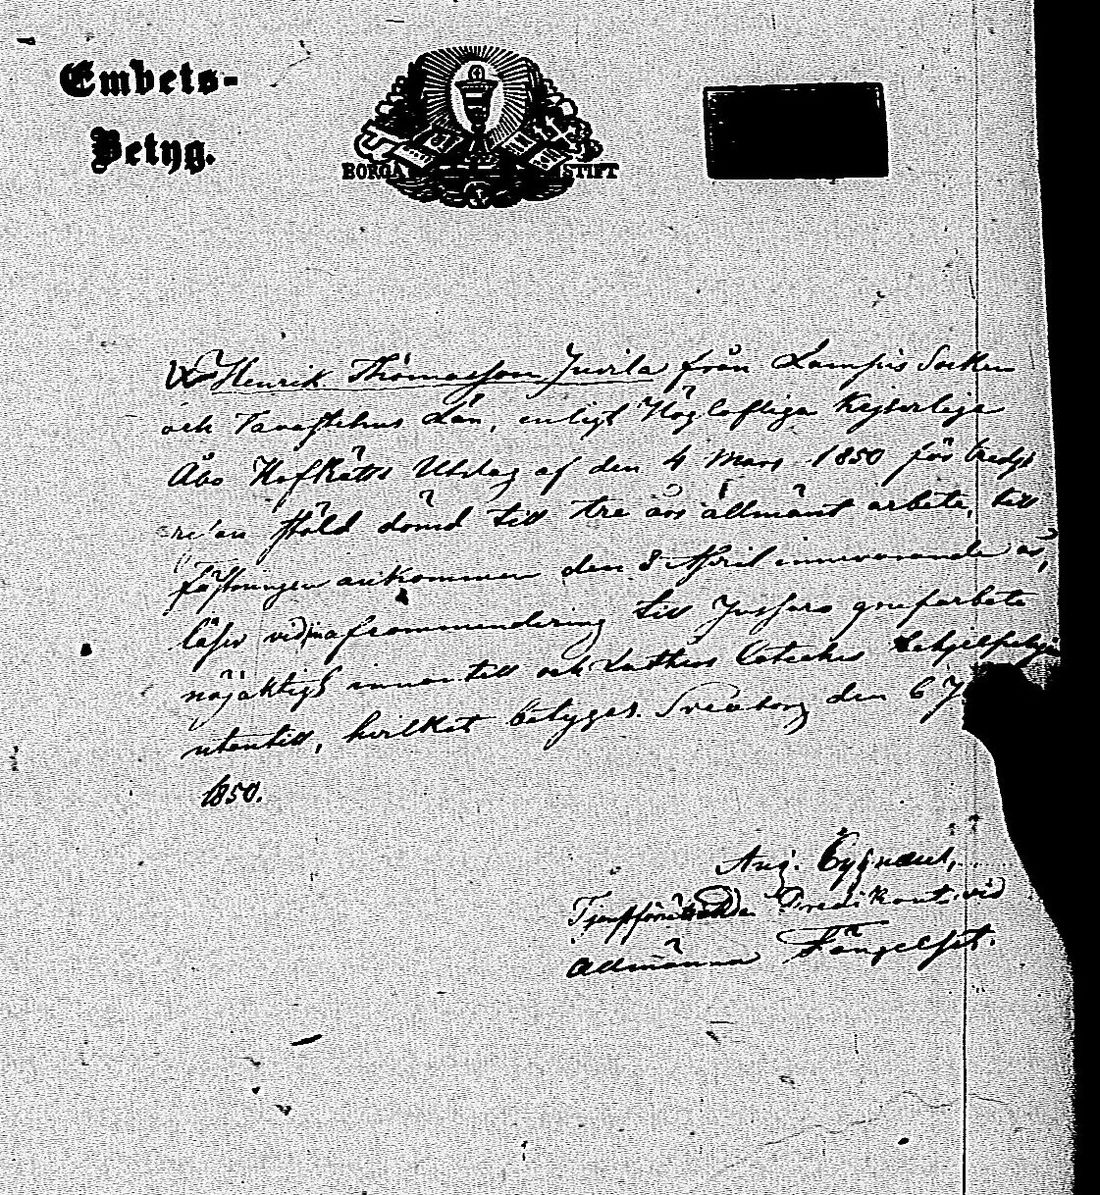 Embets-
Betyg.
BORGÅ STIFT
Henrik Thomasson Juvila från Lampis Socken
och Tavastehus Län, enligt Höglofliga Kejserliga
Åbo HofRätts Utslag af den 4 Mars 1850 för tredje
resan stöld dömd till tre års allmänt arbete, till
fästningen ankommen den 8 April innevarande år,
läser vid afkommendering till Jussarö grufarbete
nöjaktigt innantill och Luthers Cateches
utantill, hvilket betygas. Sveaborg den 6
1850.
Aug. Cygnæus,
Tjenstförrättande Predikant vid
Allmänna Fängelset.